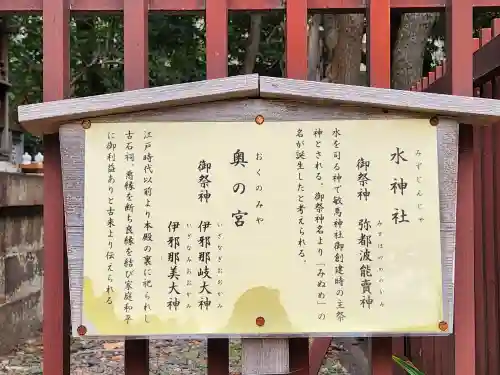 水神社
みずじんじゃ
御祭神 弥都波能賣神
みずはのめのかみ
水を司る神で敏馬神社御創建時の主祭
神とされる。御祭神名より「みぬめ」の
名が誕生したと考えられる。
奥の宮
おくのみや
御祭神 伊邪那岐大神
いざなぎおおかみ
伊邪那美大神
いざなみおおかみ
江戸時代以前より本殿の裏に祀られし
古石祠。悪縁を断ち良縁を結び家庭和平
に御利益ありと古来より伝えられる